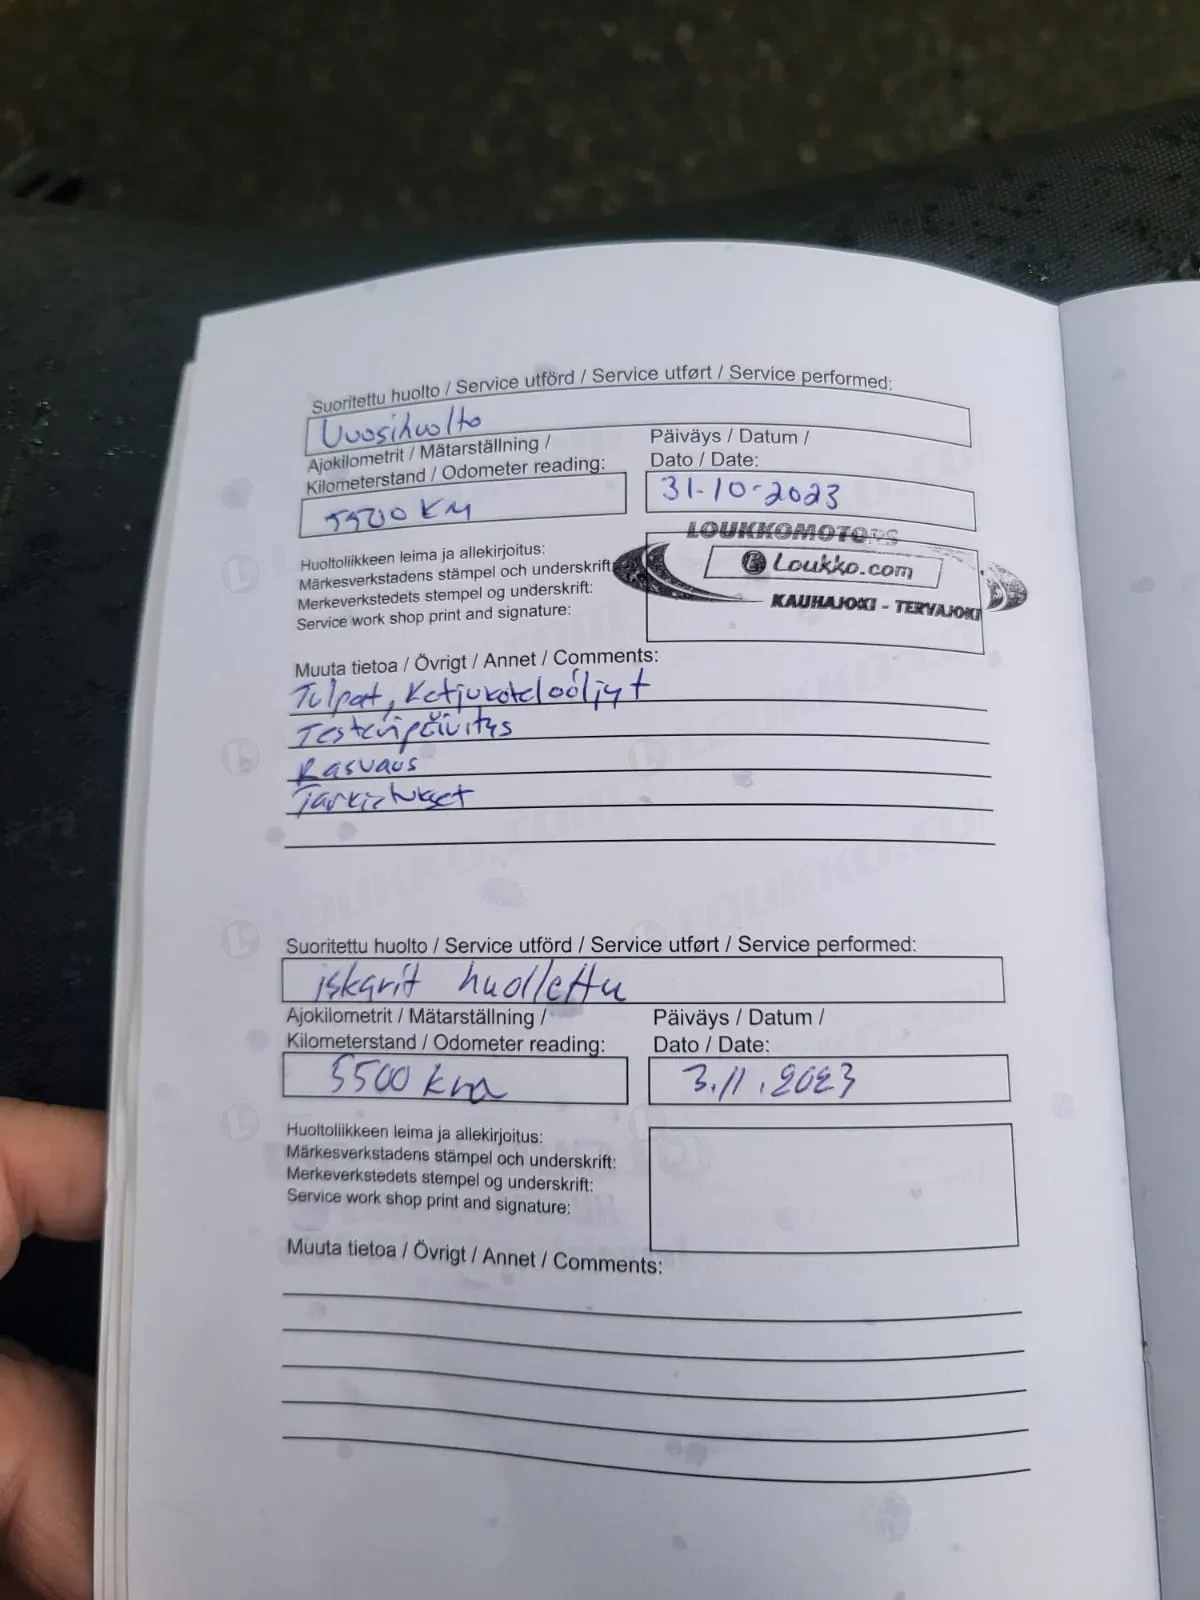 Suoritettu huolto / Service utförd / Service utført / Service performed:
Vuosihuolto
Ajokilometrit / Mätarställning /
Kilometerstand / Odometer reading:
5500 KM
Päiväys / Datum /
Dato / Date:
31-10-2023
Huoltoliikkeen leima ja allekirjoitus:
Märkesverkstadens stämpel och underskrift:
Merkeverkstedets stempel og underskrift:
Service work shop print and signature:
LOUKKOMOTORS
Loukko.com
KAUHAJOKI - TERVAJOKI
Muuta tietoa / Övrigt / Annet / Comments:
Tulpat, Ketjukoteloöljyt
Testeripäivitys
Rasvaus
Tarkistukset
LOUKKO.com
LOUKKO.com
Suoritettu huolto / Service utförd / Service utført / Service performed:
iskarit huollettu
Ajokilometrit / Mätarställning /
Kilometerstand / Odometer reading:
5500 km
Päiväys / Datum /
Dato / Date:
3.11.2023
Huoltoliikkeen leima ja allekirjoitus:
Märkesverkstadens stämpel och underskrift:
Merkeverkstedets stempel og underskrift:
Service work shop print and signature:
Muuta tietoa / Övrigt / Annet / Comments: